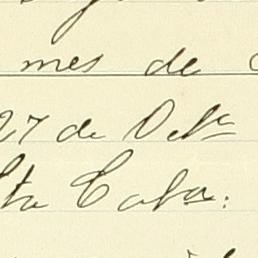 mes de
27 de Oct.e
Sta Cata.